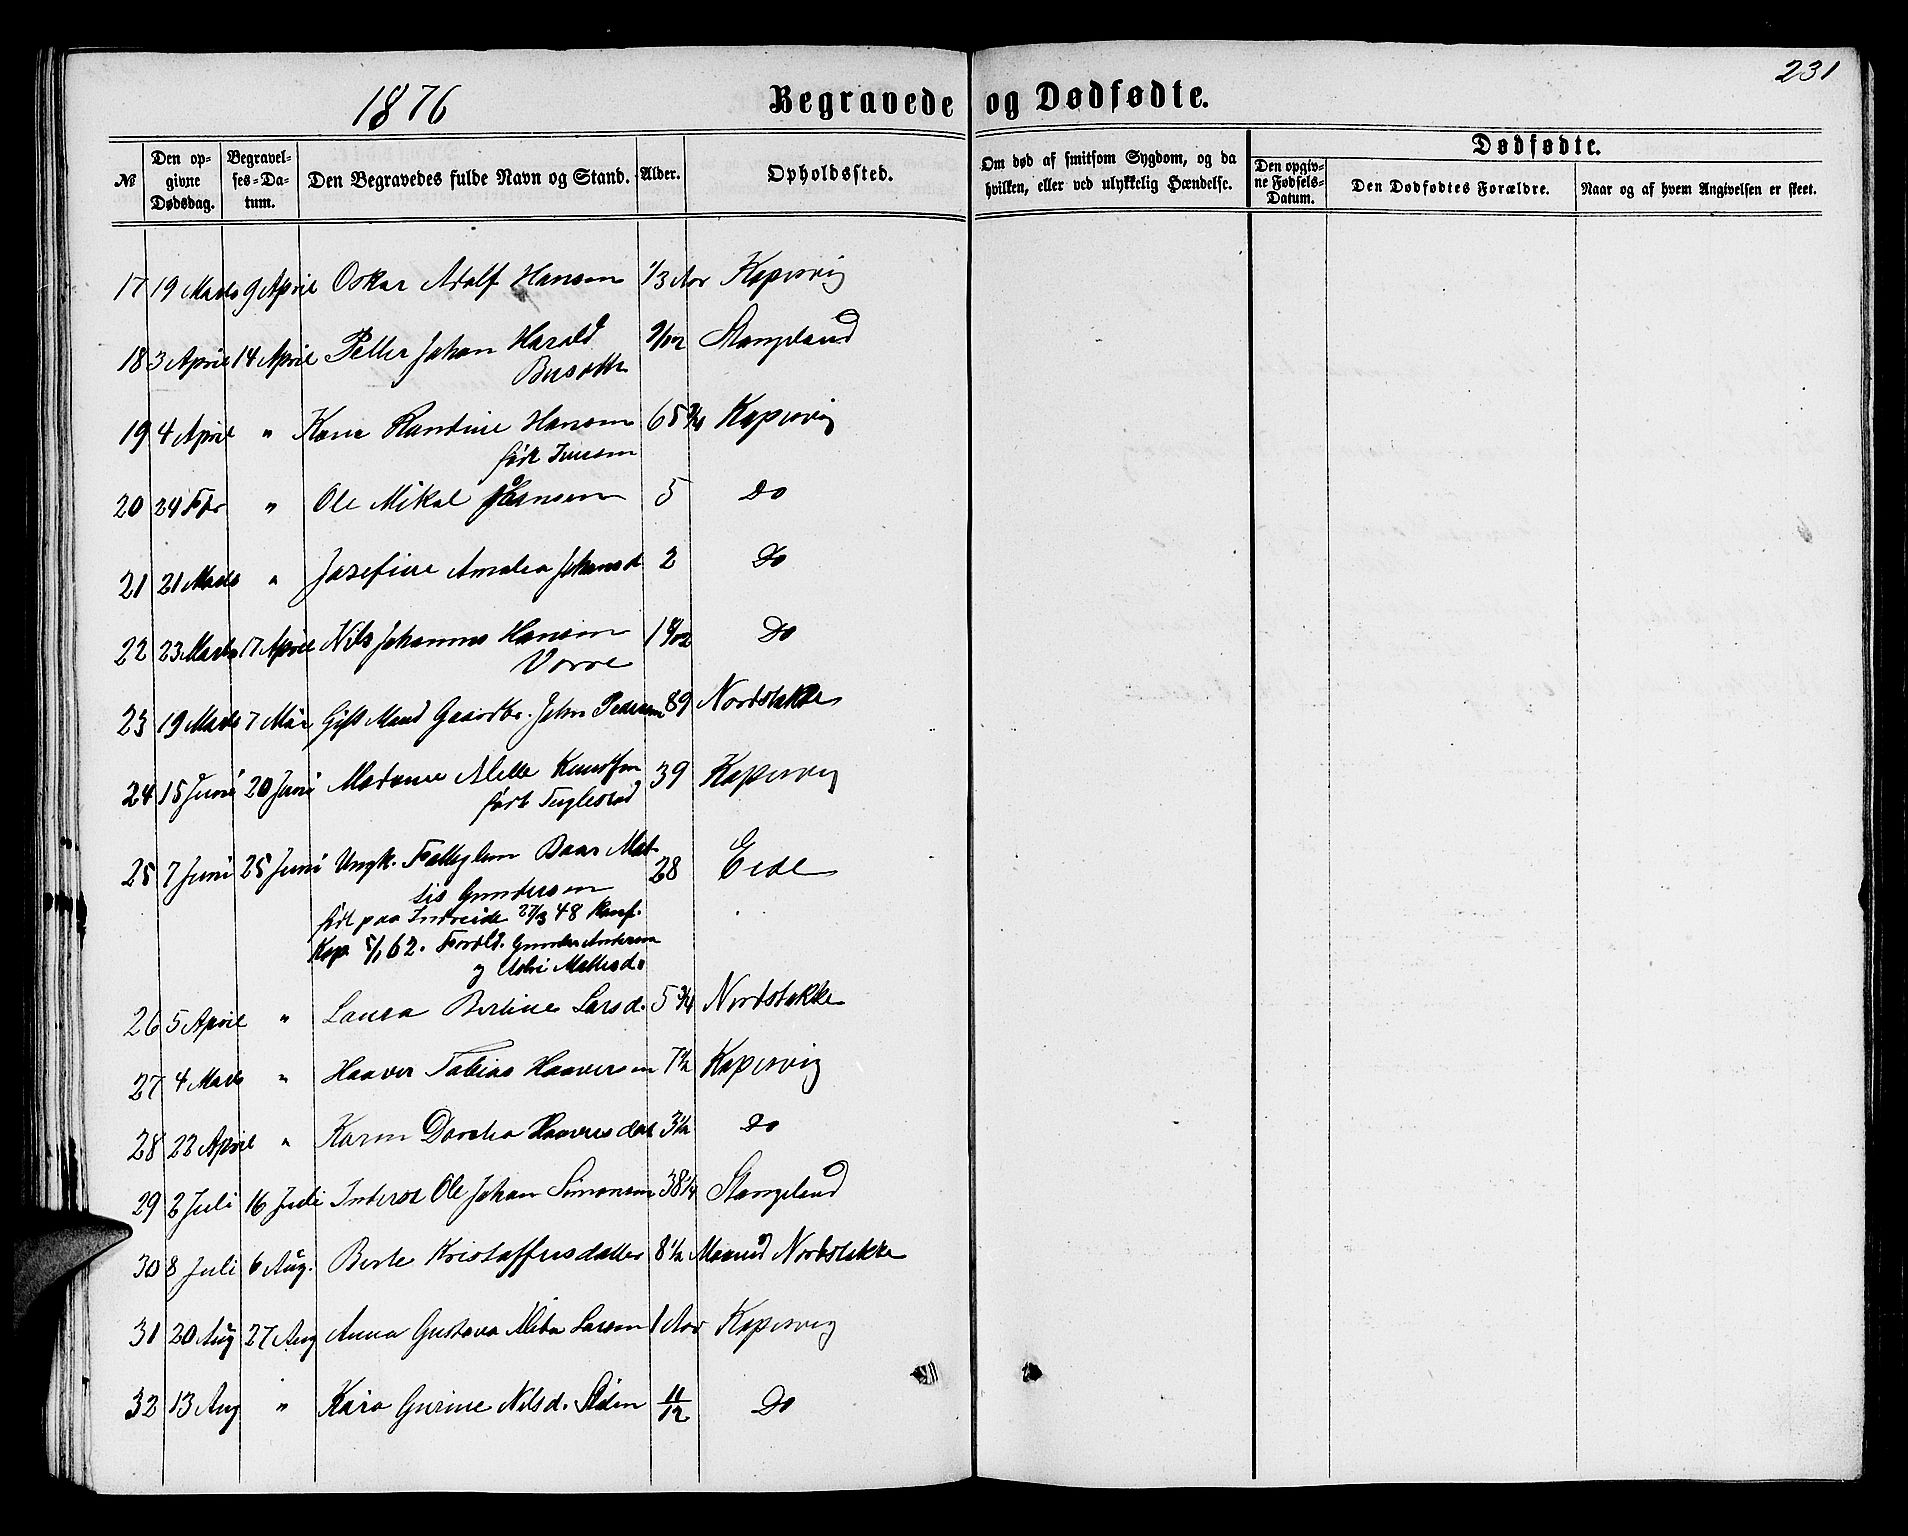 1876
Begravede og Dødfødte.
231
№
Den opgivne Dødsdag.
Begravelses-Datum.
Den Begravedes fulde Navn og Stand.
Alder.
Opholdssted.
Om død af smitsom Sygdom, og da hvilken, eller ved ulykkelig Hændelse.
Dødfødte.
Den opgivne Fødsels-Datum.
Den Dødfødtes Forældre.
Naar og af hvem Angivelsen er skeet.
17 19 Marts 9 April Oskar Adolf Hansen 1/3 Aar Kopervig
18 3 April 14 April Petter Johan Harald 9/12 Stangeland
19 4 April " Karen Randine Hansen 65 3/4 Kopervig
født Iversen
20 24 Febr " Ole Mikal Hansen 5 Do
21 21 Marts " Josefine Amalia Johansd 2 Do
22 23 Marts 17 April Nils Johannes Hansen Do
Vorre
23 19 Marts 7 Mai Gift Mand Gaardbr. John Pedersen 89 Nordstokke
24 15 Juni 20 Juni Madame Milla Knudsen 39 Kopervig
født Fuglestad
25 7 Juni 25 Juni Ungk. Fattiglem Baar Mat- 28 Eide
tis Gundersen
født paa Indreeide 27/3 48 Konf.
Kop 5/1 62. Foræld. Gunder Andersen
og Mattisd.
26 5 April " Laura Bertine Larsd. 5 3/4 Nordstokke
27 4 Marts " Haaver Tobias Haaversen 7 1/2 Kopervig
28 22 April " Karen Dorthea Haaversdat 3 1/2 Do
29 2 Juli 16 Juli Inderst Ole Johan Simonsen 38 1/4 Stangeland
30 8 Juli 6 Aug. Berte Kristoffersdatter 8 1/2 Nordstokke
31 20 Aug 27 Aug Anna Gustava Larsen 1 Aar Kopervig
32 13 Aug " Kara Gurine Nilsd. 11/12 Do